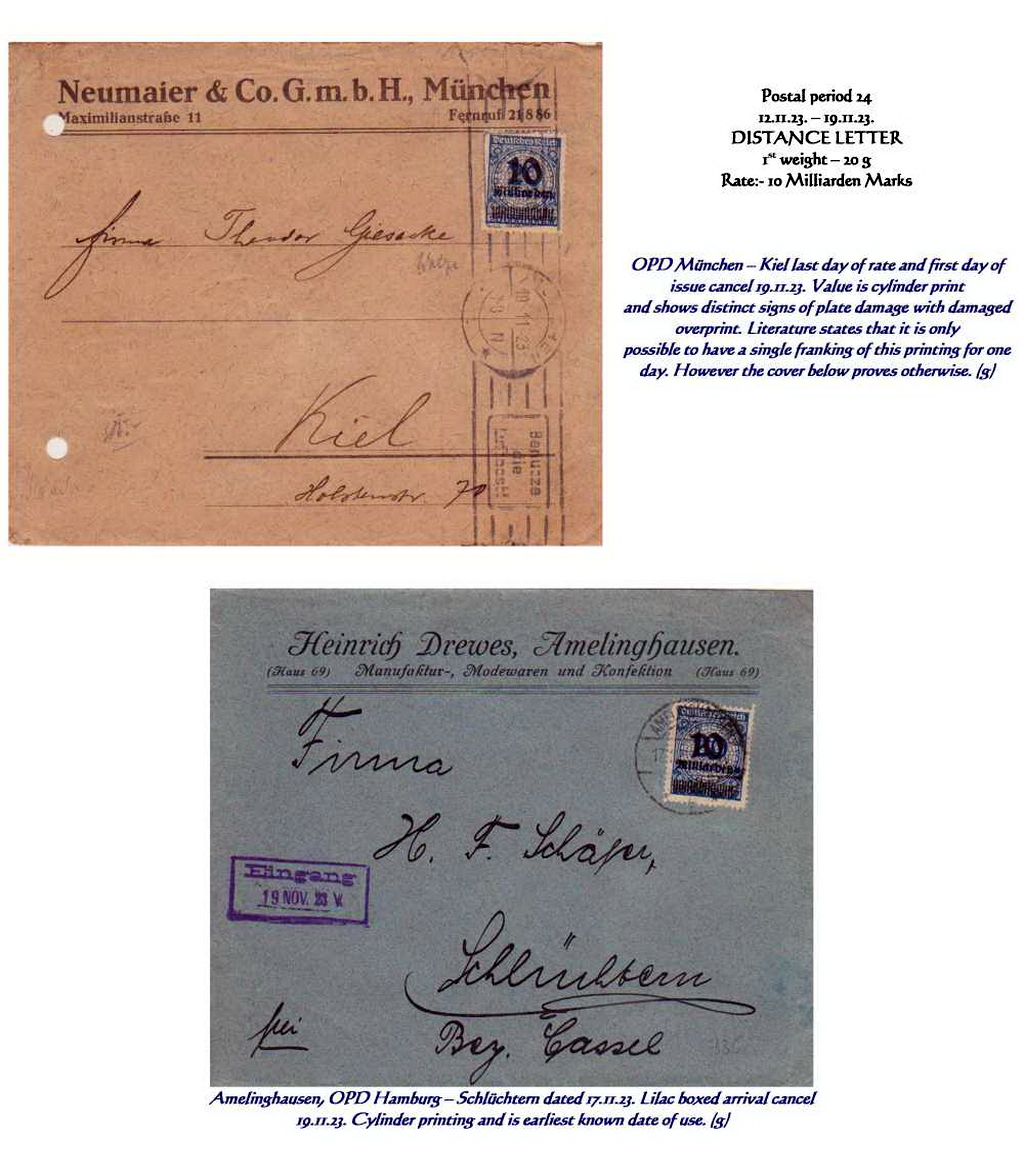 Neumaier & Co. G. m. b. H., München
Maximilianstraße 11 Fernruf 21886
Deutsches Reich
10
Milliarden
Firma Theodor Giesecke
19 11 23
7-8 N
Benutze
die
Luftpost
Kiel
Holstenstr. 70
Postal period 24
12.11.23. – 19.11.23.
DISTANCE LETTER
1st weight – 20 g
Rate:- 10 Milliarden Marks
OPD München – Kiel last day of rate and first day of
issue cancel 19.11.23. Value is cylinder print
and shows distinct signs of plate damage with damaged
overprint. Literature states that it is only
possible to have a single franking of this printing for one
day. However the cover below proves otherwise. (g)
Heinrich Drewes, Amelinghausen.
(Haus 69) Manufaktur-, Modewaren und Konfektion (Haus 69)
Deutsches Reich
10
Milliarden
Firma
H. F. Schäfer,
Eingang
19 NOV. 23 V.
Schlüchtern
frei
Bez. Cassel
Amelinghausen, OPD Hamburg – Schlüchtern dated 17.11.23. Lilac boxed arrival cancel
19.11.23. Cylinder printing and is earliest known date of use. (g)